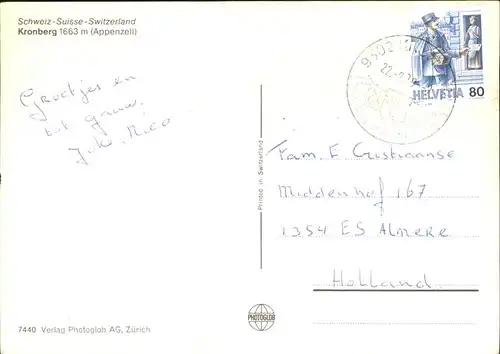 Schweiz-Suisse-Switzerland
Kronberg 1663 m (Appenzell)
Groetjes en
tot gauw.
HELVETIA 80
Printed in Switzerland
Fam. E Cristiaanse
Middenhof 167
1354 ES Almere
Holland.
PHOTOGLOB
7440 Verlag Photoglob AG, Zürich